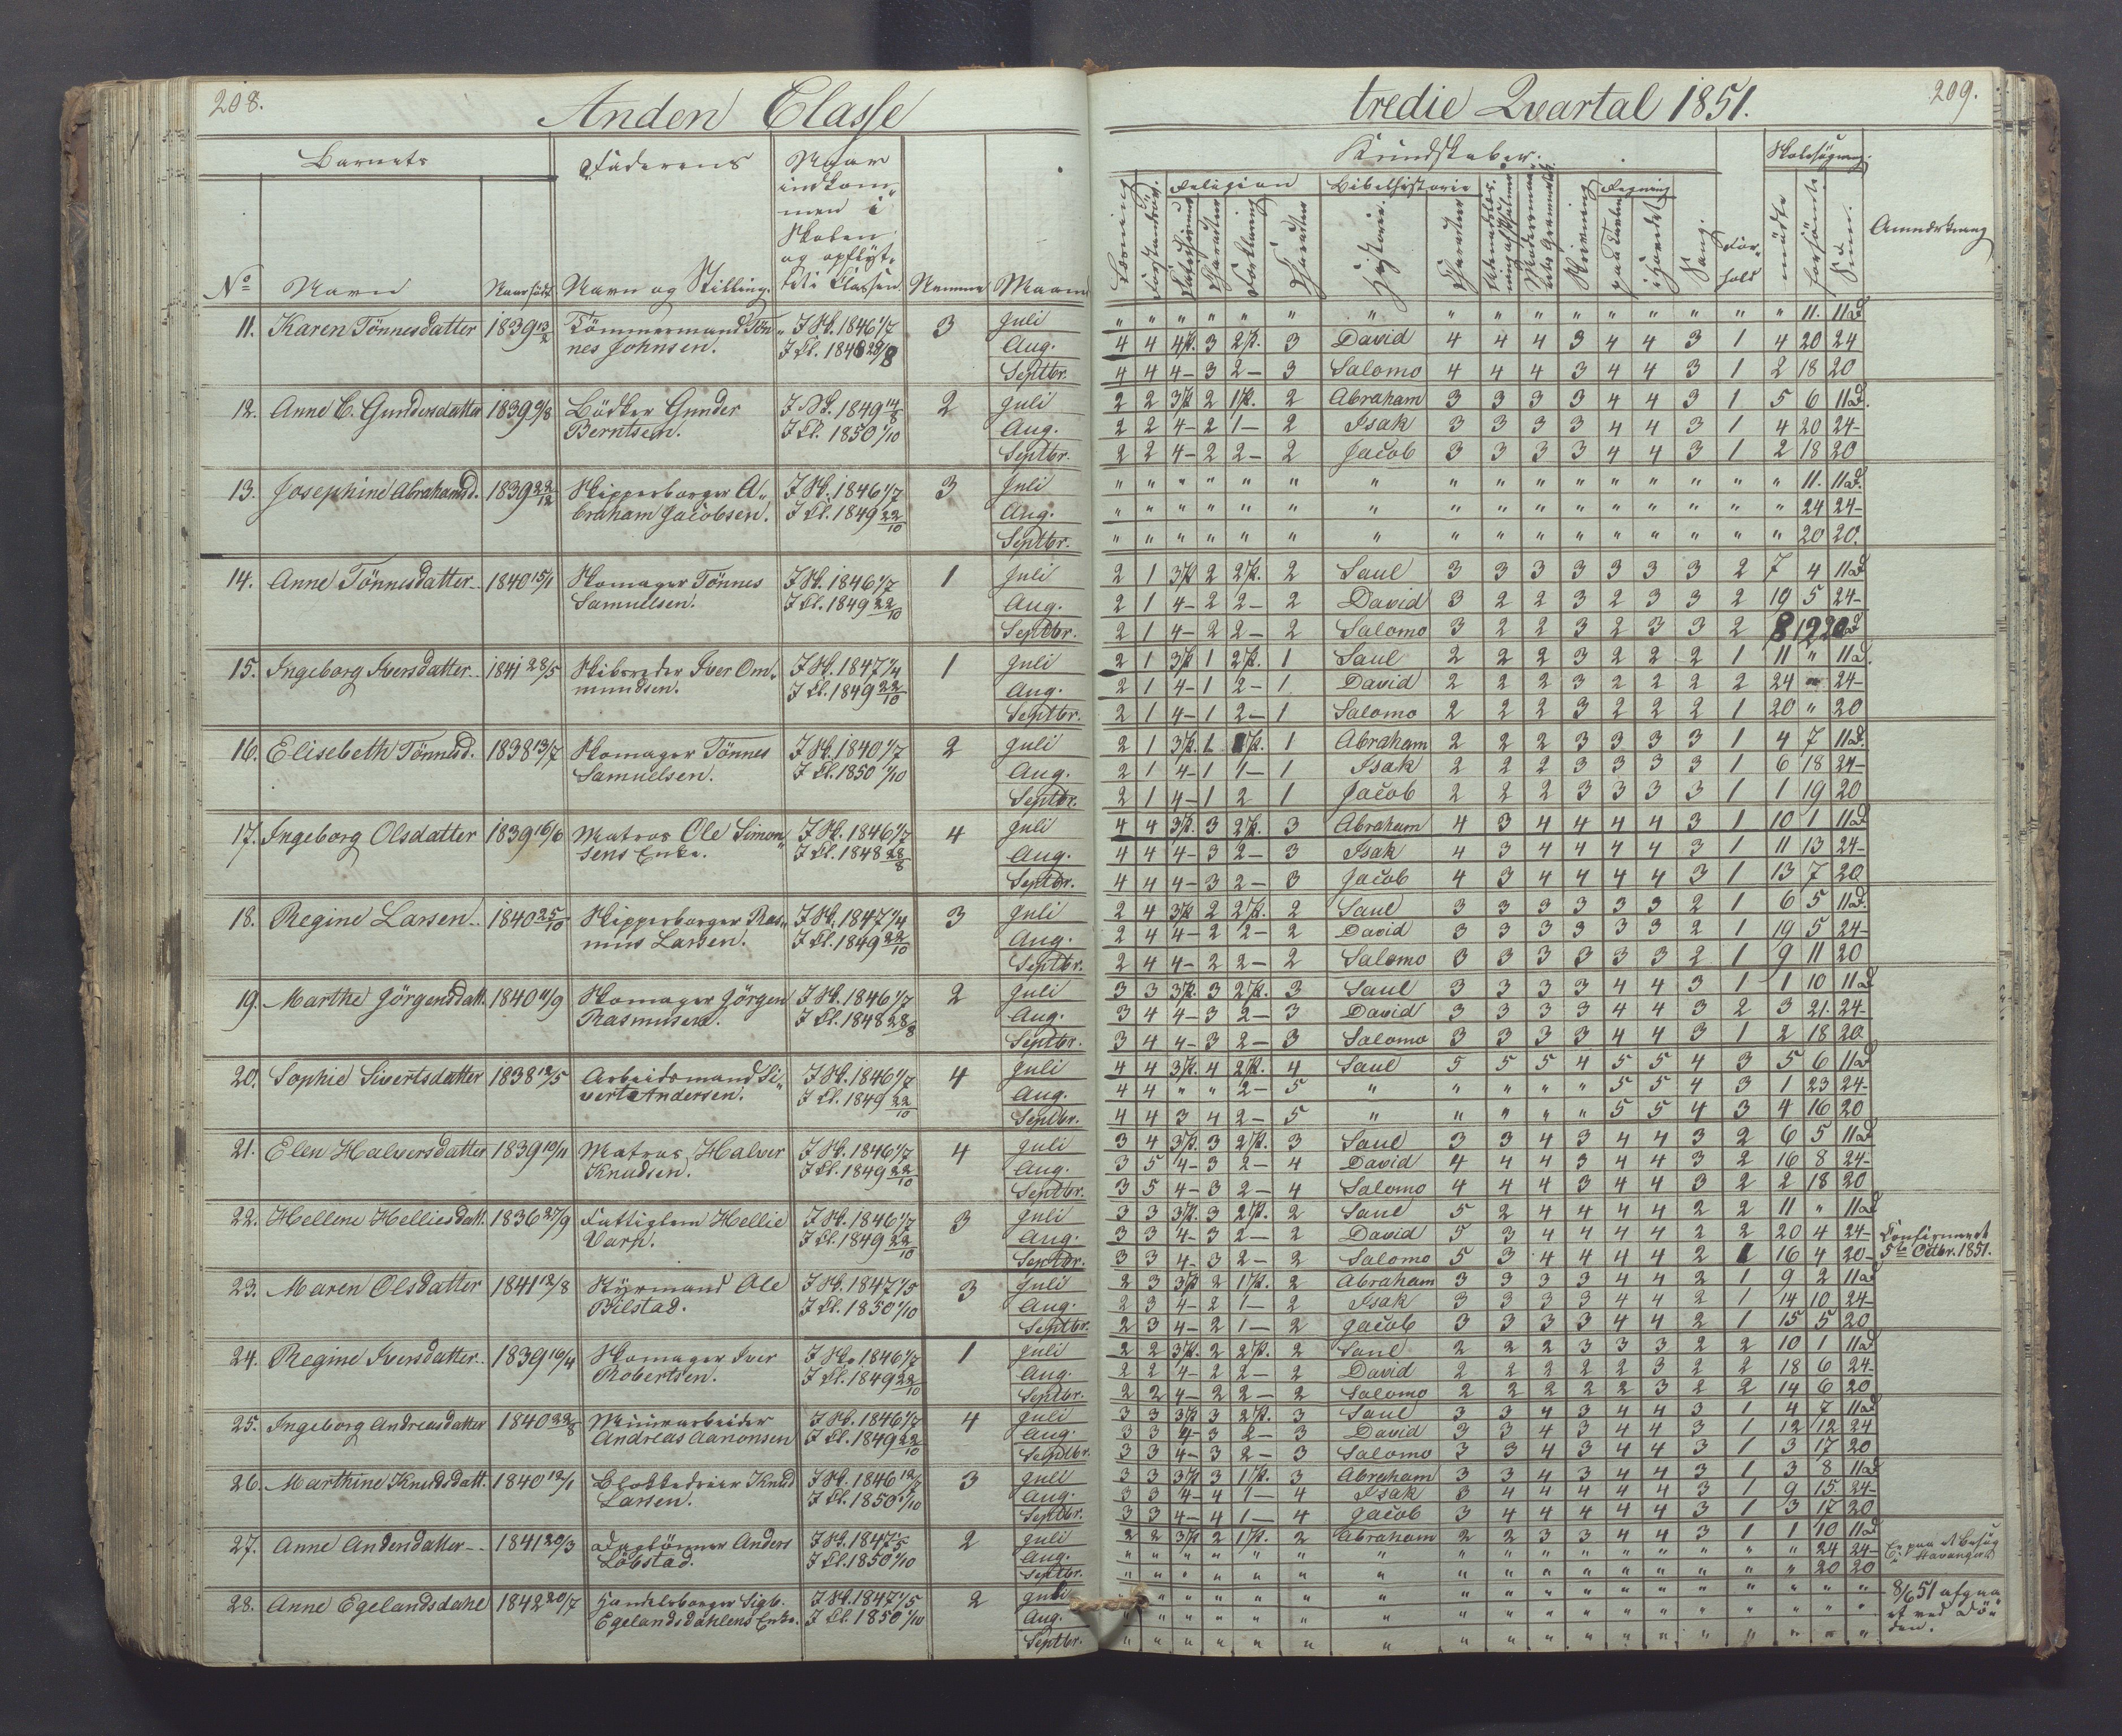 208.
Anden Classe
Barnets
Faderens
Naar
indkom-
men i
Skolen
og opflyt-
tet i Classen.
No
Navn
Naar født
Navn og Stilling.
Nemme
Maaned
11. Karen Tönnesdatter 1839 13/2 Tömmermand Tön- J Sk. 1846 1/7 3 Juli
nes Johnsen. J Cl. 1848 28/8 Aug.
Septbr.
12. Anne C. Gundersdatter 1839 9/8 Bödker Gunder J Sk. 1849 14/5 2 Juli
Berntsen. J Cl. 1850 1/10 Aug.
Septbr.
13. Josephine Abrahamsd. 1839 22/12 Skipperborger A- J Sk. 1846 1/7 3 Juli
braham Jacobsen. J Cl. 1849 22/10 Aug.
Septbr.
14. Anne Tönnesdatter 1840 15/1 Skomager Tönnes J Sk. 1846 1/7 1 Juli
Samuelsen. J Cl. 1849 22/10 Aug.
Septbr.
15. Ingeborg Iversdatter 1841 28/5 Skibsreder Iver Om- J Sk. 1847 1/4 1 Juli
mundsen. J Cl. 1849 22/10 Aug.
Septbr.
16. Elisebeth Tönnesd. 1838 13/7 Skomager Tönnes J Sk. 1840 1/7 2 Juli
Samuelsen. J Cl. 1850 1/10 Aug.
Septbr.
17. Ingeborg Olsdatter 1839 16/6 Matros Ole Simon- J Sk. 1846 1/7 4 Juli
sens Enke. J Cl. 1848 28/8 Aug.
Septbr.
18. Regine Larsen 1840 25/10 Skipperborger Ras- J Sk. 1847 1/4 3 Juli
mus Larsen. J Cl. 1849 22/10 Aug.
Septbr.
19. Marthe Jörgensdatt. 1840 11/9 Skomager Jörgen J Sk. 1846 1/7 2 Juli
Rasmusen. J Cl. 1848 28/8 Aug.
Septbr.
20. Sophie Sivertsdatter 1838 12/5 Arbeidsmand Si- J Sk. 1846 1/7 4 Juli
vert Andersen. J Cl. 1849 22/10 Aug.
Septbr.
21. Elen Halversdatter 1839 10/11 Matros Halver J Sk. 1846 1/7 4 Juli
Knudsen. J Cl. 1849 22/10 Aug.
Septbr.
22. Hellene Helliesdatt. 1836 27/9 Fattiglem Hellie J Sk. 1846 1/7 3 Juli
Varp. J Cl. 1849 22/10 Aug.
Septbr.
23. Maren Olsdatter 1841 12/8 Styrmand Ole J Sk. 1847 1/5 3 Juli
Bilstad. J Cl. 1850 1/10 Aug.
Septbr.
24. Regine Iversdatter 1839 16/4 Skomager Iver J Sk. 1846 1/7 1 Juli
Robertsen. J Cl. 1849 22/10 Aug.
Septbr.
25. Ingeborg Andreasdatter 1840 22/8 Muurarbeider J Sk. 1846 1/7 4 Juli
Andreas Aanonsen J Cl. 1849 22/10 Aug.
Septbr.
26. Marthine Knudsdatt. 1840 12/1 Blokkedreier Knud J Sk. 1846 12/7 3 Juli
Larsen. J Cl. 1850 1/10 Aug.
Septbr.
27. Anne Andersdatter 1841 20/3 Daglönner Anders J Sk. 1847 1/5 2 Juli
Löbstad. J Cl. 1850 1/10 Aug.
Septbr.
28. Anne Egelandsdahl 1842 20/7 Handelsborger Sigb. J Sk. 1847 1/5 2 Juli
Egelandsdahlens Enke. J Cl. 1850 1/10 Aug.
Septbr.
209.
tredie Qvartal 1851.
Kundskaber.
Skolesögning.
Religion
Bibelhistorie
Regning
Læsning
Forklaring
Charakter
Historie.
Charakter
Skrivning
paa Tavlen
i Hovedet
Sang.
For-
hold
mödte
forsömte
Sum.
Anmærkning
" " " " " " " " " " " " " " " " 11. 11 D
4 4 4 St. 3 2 St. 3 David 4 4 4 3 4 4 3 1 4 20 24
4 4 4 - 3 2 - 3 Salomo 4 4 4 3 4 4 3 1 2 18 20
2 2 3 St. 2 1 St. 2 Abraham 3 3 3 3 4 4 3 1 5 6 11 D.
2 2 4 - 2 1 - 2 Isak 3 3 3 3 4 4 3 1 4 20 24 -
2 2 4 - 2 2 - 2 Jacob 3 3 3 3 4 4 3 1 2 18 20
" " " " " " " " " " " " " " " " 11. 11 D.
" " " " " " " " " " " " " " " " 24 24 -
" " " " " " " " " " " " " " " " 20 20.
2 1 3 St. 2 2 St. 2 Saul 3 3 3 3 3 3 3 2 7 4 11 D
2 1 4 - 2 2 - 2 David 3 2 2 3 2 3 3 2 19 5 24 -
2 1 4 - 2 2 - 2 Salomo 3 2 2 3 2 3 3 2 8 12 20 D
2 1 3 St. 1 2 St. 1 Saul 2 2 2 3 2 2 2 1 11 " 11 D.
2 1 4 - 1 2 - 1 David 2 2 2 3 2 2 2 2 24 " 24 -
2 1 4 - 1 2 - 1 Salomo 2 2 2 3 2 2 2 1 20 " 20
2 1 3 St. 1 1 St. 1 Abraham 2 2 2 3 3 3 3 1 4 7 11 D.
2 1 4 - 1 1 - 1 Isak 2 2 2 3 3 3 3 1 6 18 24 -
2 1 4 - 1 2 1 Jacob 2 2 2 3 3 3 3 1 1 19 20
4 4 3 St. 3 2 St. 3 Abraham 4 3 4 4 4 4 3 1 10 1 11 D
4 4 4 - 3 2 - 3 Isak 4 3 4 4 4 4 3 1 11 13 24 -
4 4 4 - 3 2 - 3 Jacob 4 3 4 4 4 4 3 1 13 7 20
2 4 3 St. 2 2 St. 2 Saul 3 3 3 3 3 3 2 1 6 5 11 D.
2 4 4 - 2 2 - 2 David 3 3 3 3 3 3 2 1 19 5 24 -
2 4 4 - 2 2 - 2 Salomo 3 3 3 3 3 3 2 1 9 11 20
3 3 3 St. 3 2 St. 3 Saul 3 3 3 3 4 4 3 1 1 10 11 D
3 4 4 - 3 2 - 3 David 3 3 3 3 4 4 3 2 3 21. 24 -
3 4 4 - 3 2 - 3 Salomo 3 3 3 3 4 4 3 1 2 18 20
4 4 3 St. 4 2 St. 4 Saul 5 5 5 4 5 5 4 3 5 6 11 D
4 4 " " 2 - 5 " " " " " 5 5 4 3 1 23 24 -
4 4 3 4 2 - 5 " " " " " 5 5 4 3 4 16 20
3 4 3 St. 3 2 St. 3 Saul 3 3 4 3 4 4 3 2 6 5 11 D
3 5 4 - 3 2 - 4 David 4 4 4 3 4 4 3 2 16 8 24 -
3 5 4 - 3 2 - 4 Salomo 4 4 4 3 4 4 3 2 2 18 20
3 3 3 St. 3 2 St. 2 Saul 5 2 4 4 4 4 2 2 11 " 11 D
3 3 4 - 3 2 - 2 David 5 3 4 4 4 4 2 2 20 4 24 - Confirmeret
3 3 4 - 3 2 - 2 Salomo 5 3 4 4 4 4 2 1 16 4 20 - 5te Octbr. 1851.
2 3 3 St. 2 1 St. 2 Abraham 3 3 3 3 4 4 2 1 9 2 11 D
2 3 4 - 2 1 - 2 Isak 3 3 3 3 4 4 2 1 14 10 24 -
2 3 4 - 2 1 - 2 Jacob 3 3 3 3 4 4 2 1 15 5 20
2 2 3 St. 2 2 St. 2 Saul 2 2 2 3 3 3 2 2 10 1 11 D
2 2 4 - 2 2 - 2 David 2 2 2 2 2 3 2 2 18 6 24 -
2 2 4 - 2 2 - 2 Salomo 2 2 2 2 2 3 2 2 14 6 20
3 3 3 St. 3 2 St. 3 Saul 3 3 4 3 4 4 3 1 4 7 11 D
3 3 4 - 3 2 - 3 David 3 3 4 3 4 4 3 1 12 12 24
3 3 4 - 3 2 - 3 Salomo 3 3 4 3 4 4 3 1 3 17 20
3 3 3 St. 3 1 St. 3 Abraham 3 3 4 3 4 4 3 1 3 8 11 D
3 3 4 - 4 1 - 4 Isak 3 4 4 4 4 4 3 1 9 15 24 -
3 3 4 - 4 1 - 4 Jacob 3 4 4 4 4 4 3 1 3 17 20
2 2 3 St. 2 1 St. 2 Abraham 2 2 3 3 4 4 3 1 1 10 11 D
" " " " " " " " " " " " " " " " 24 24 - Er paa et Besøg
" " " " " " " " " " " " " " " " 20 20 i Stavanger
" " " " " " " " " " " " " " " " " " 8/6 51 afgaa-
" " " " " " " " " " " " " " " " " " et ved Dö-
" " " " " " " " " " " " " " " " " " den.